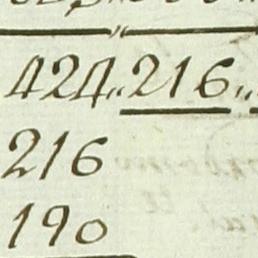 424,,216,,
216
190